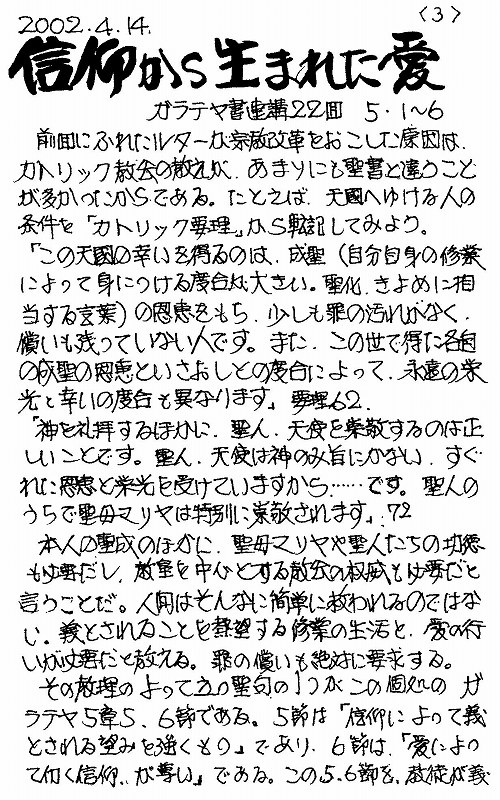 2002.4.14. 〈3〉
信仰から生まれた愛
ガラテヤ書連講22回 5・1〜6
前回にふれたルターが宗教改革をおこした原因は、
カトリック教会の教えが、あまりにも聖書と違うこと
が多かったからである。たとえば、天國へゆける人の
条件を「カトリック要理」から転記してみよう。
「この天國の幸いを得るのは、成聖（自分自身の修業
によって身につける度合が大きい。聖化、きよめに相
当する言葉）の恩恵をもち、少しも罪の汚れがなく、
償いも残っていない人です。また、この世で得た各自
の成聖の恩恵といさおしとの度合によって、永遠の栄
光と幸いの度合も異なります」要理62.
「神を礼拝するほかに、聖人、天使を崇敬するのは正
しいことです。聖人、天使は神のみ旨にかない、すぐ
れた恩恵と栄光を受けていますから……です。聖人の
うちで聖母マリヤは特別に崇敬されます」.72
本人の聖成のほかに、聖母マリヤや聖人たちの功徳
も必要だし、教皇を中心とする教会の权威も必要だと
言うことだ。人间はそんなに簡単に救われるのではな
い。義とされることを熱望する修業の生活と、愛の行
いが必要だと教える。罪の償いも絶対に要求する。
その教理のよって立つ聖句の1つがこの個処の ガ
ラテヤ5章5、6節である。5節は「信仰によって義
とされる望みを強くもつ」であり、6節は、「愛によっ
て仂く信仰、が尊い」である。この5.6節を、教徒が義